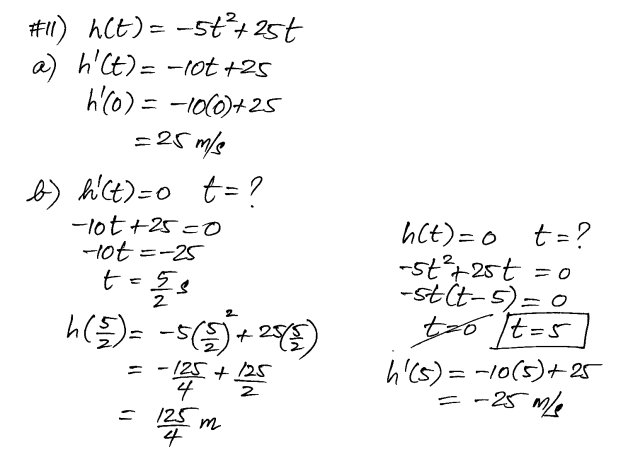 #11) h(t) = -5t² + 25t
a) h'(t) = -10t + 25
h'(0) = -10(0) + 25
= 25 m/s
b) h'(t) = 0 t = ?
-10t + 25 = 0
-10t = -25
t = 5/2 s
h(5/2) = -5(5/2)² + 25(5/2)
= -125/4 + 125/2
= 125/4 m
h(t) = 0 t = ?
-5t² + 25t = 0
-5t(t - 5) = 0
t=0 t = 5
h'(5) = -10(5) + 25
= -25 m/s